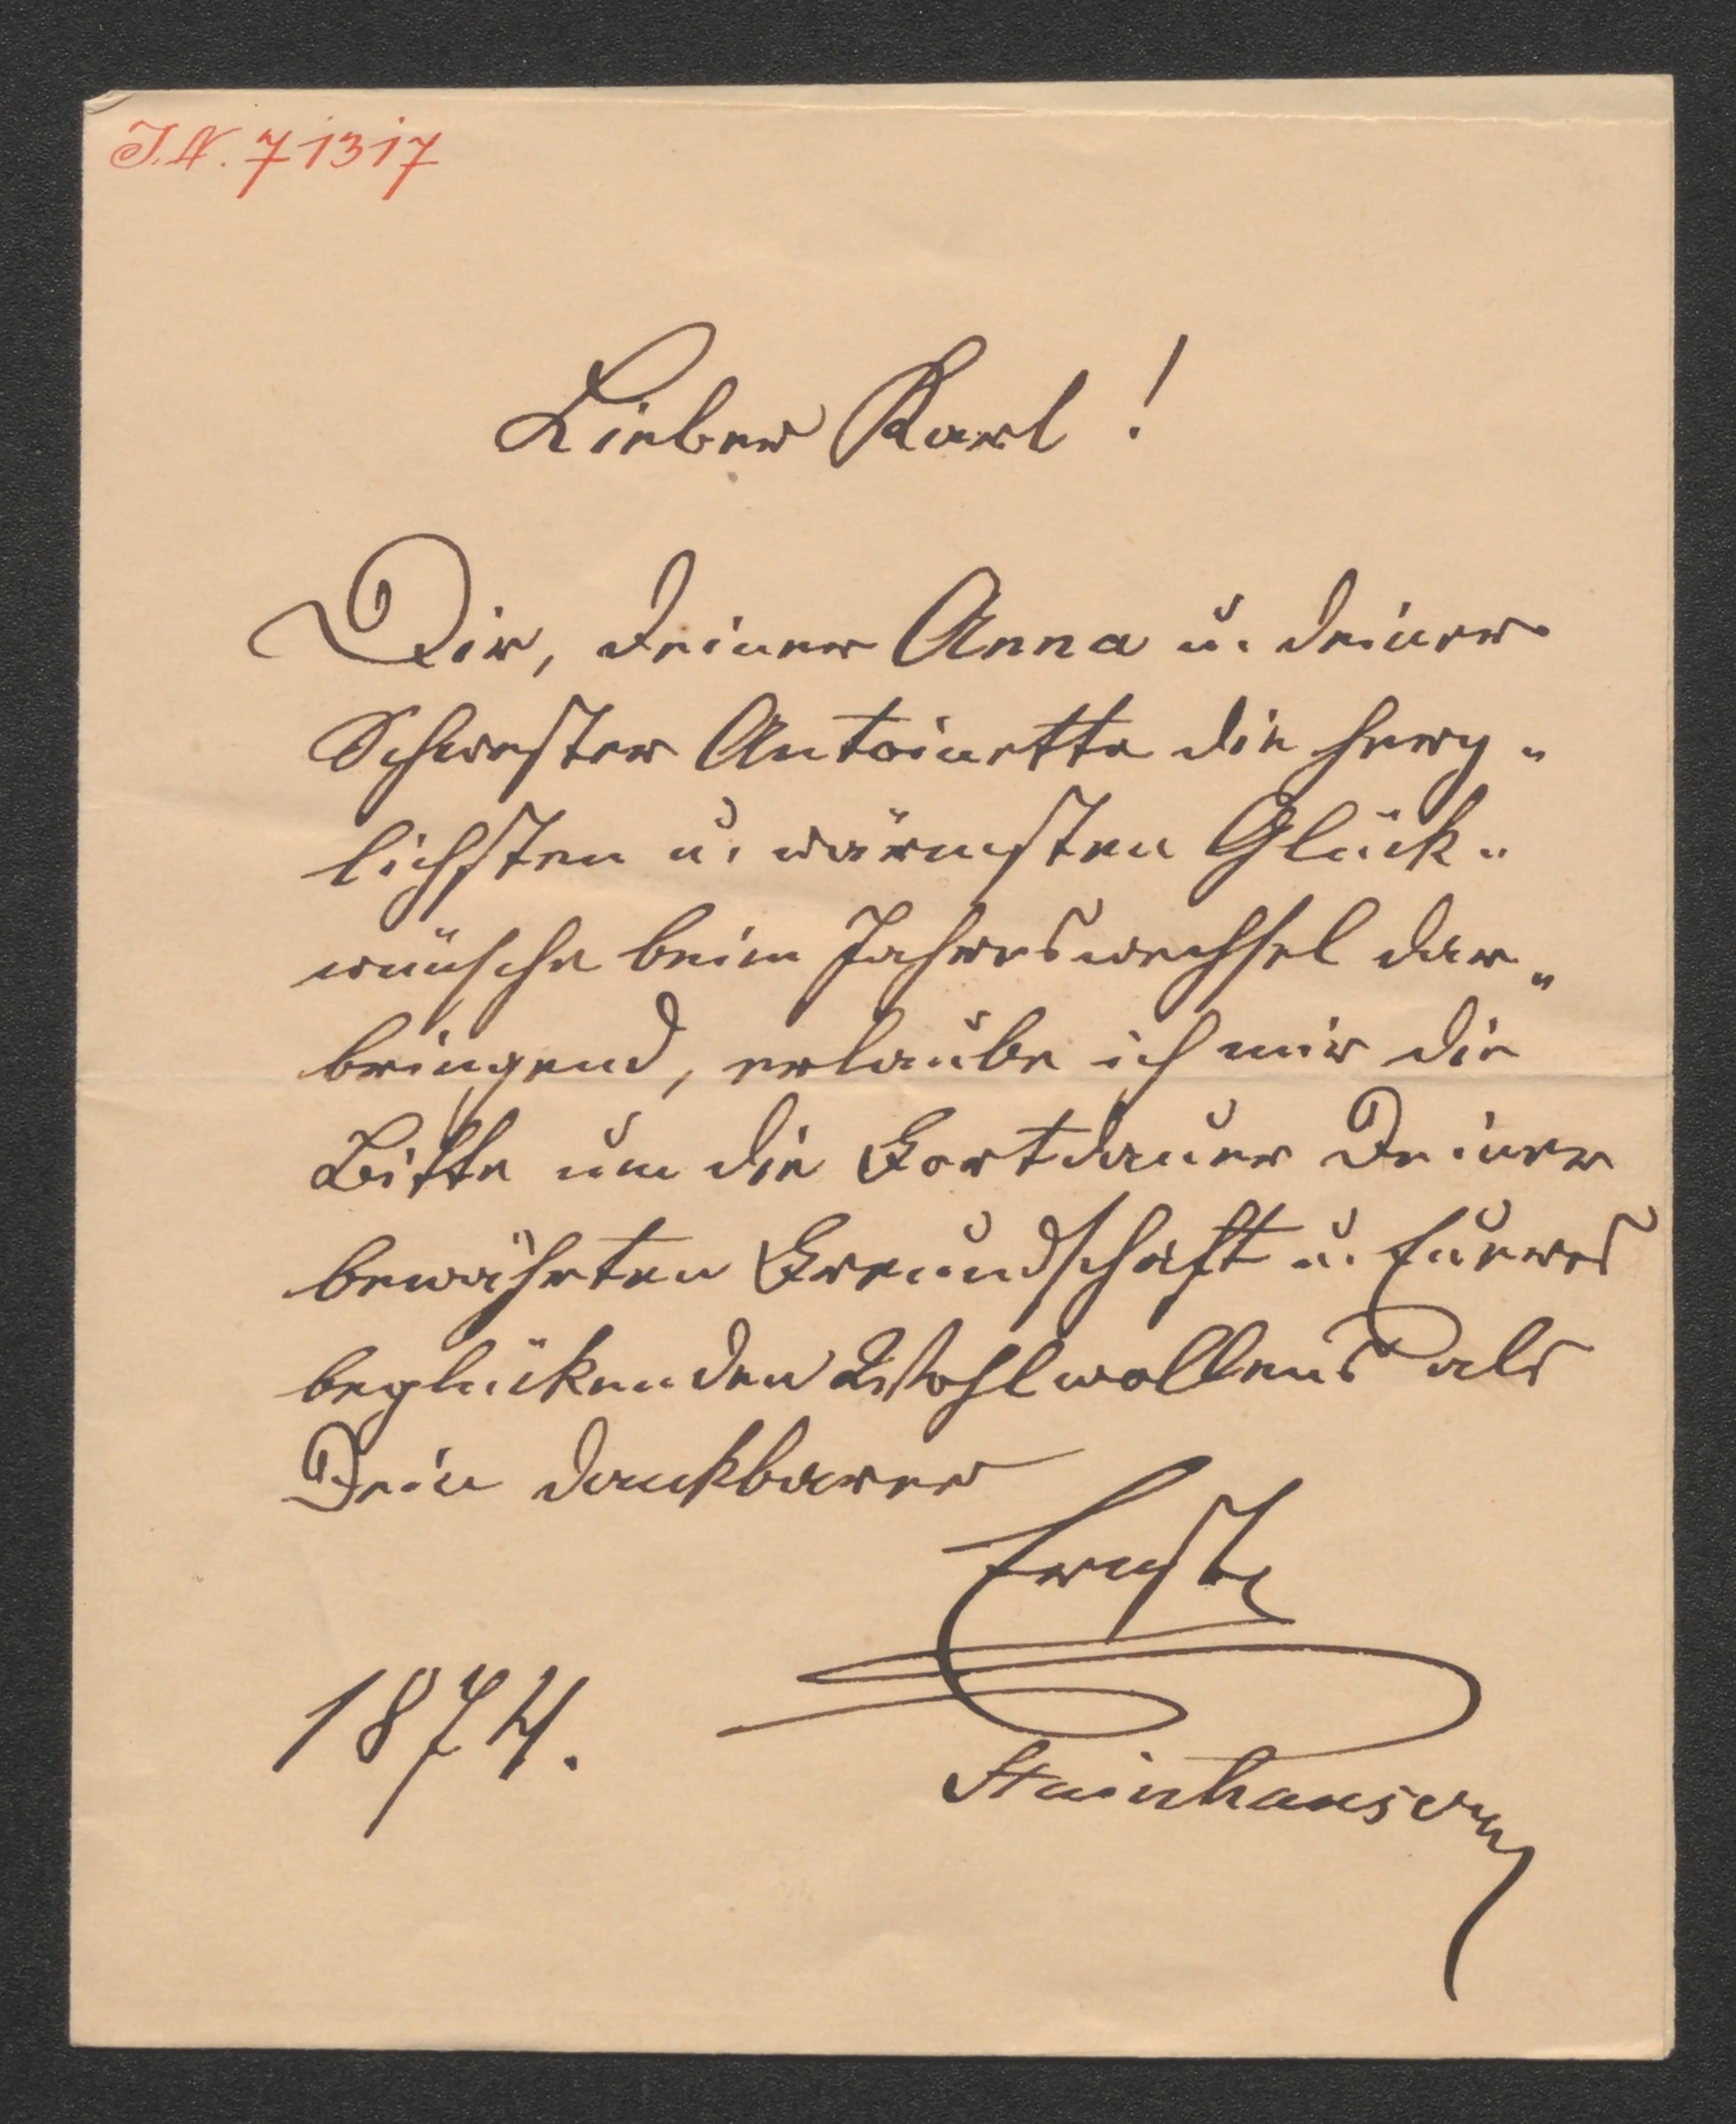 J.N. 71317
Lieber Karl !
Dir, Deiner Anna u. Deiner
Schwester Antoinette die herz„
lichsten u. wärmsten Glück„
wünsche beim Jahreswechsel dar„
bringend, erlaube ich mir die
Bitte um die Fortdauer Deiner
bewährten Freundschaft u. Eueres
beglückenden Wohlwollens als
Dein dankbarer
Ernst
1874.
Steinhauser